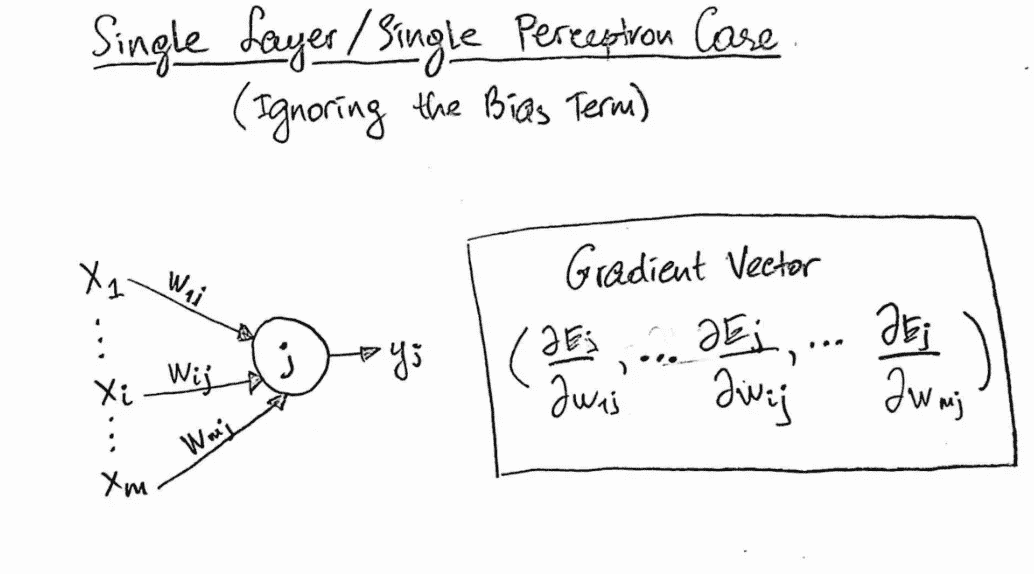 Single Layer/Single Perceptron Case.
(Ignoring the Bias Term)
X1
W1j
Xi
Wij
Xm
Wmj
j
yj
Gradient Vector
(∂Ej/∂w1j, ... ∂Ej/∂wij, ... ∂Ej/∂wmj)